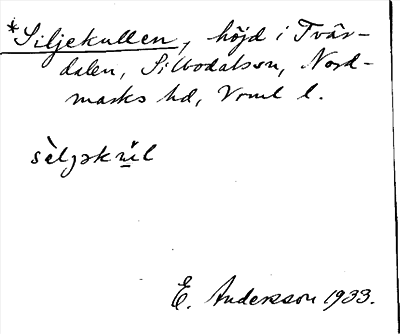 *Siljekullen, höjd i Tvär-
dalen, Silbodalssn, Nord-
marks hd, Vrml l.
E. Andersson 1933.